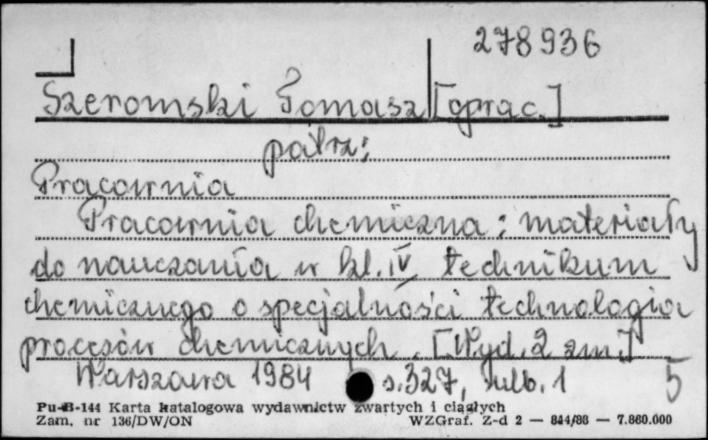 278936
Szeromski Tomasz [oprac.]
patrz:
Pracownia
Pracownia chemiczna : materiały
do nauczania w kl. IV technikum
chemicznego o specjalności technologia
procesów chemicznych. [Wyd. 2 zm.]
Warszawa 1984 s. 327, nlb. 1 5
Pu-B-144 Karta katalogowa wydawnictw zwartych i ciągłych
Zam. nr 136/DW/ON WZGraf. Z-d 2 — 844/86 — 7.860.000